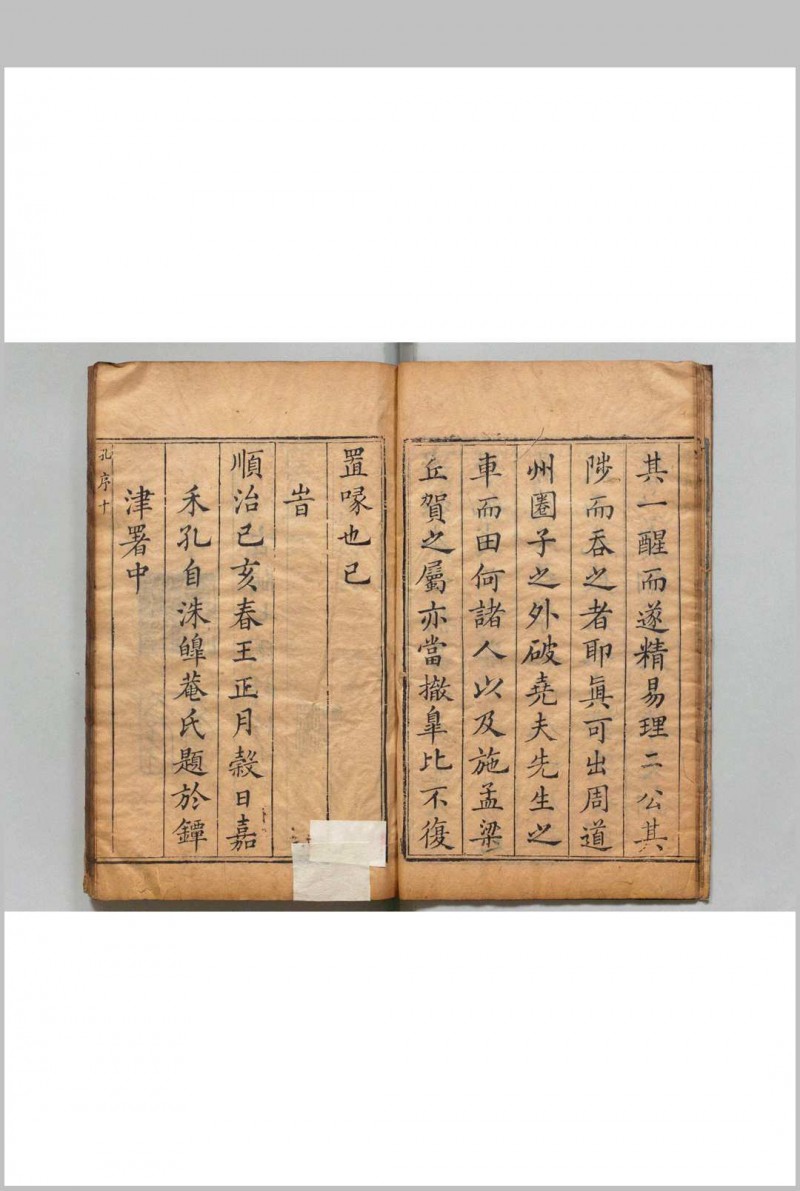 其一醒而遂精易理二公其
陟而吞之者耶眞可出周道
州圏子之外破堯夫先生之
車而田何諸人以及施孟梁
丘賀之屬亦當撤皐比不復
置喙也已
旹
順治己亥春王正月榖日嘉
禾孔自洙皥菴氏題於鐔
津署中
孔序十